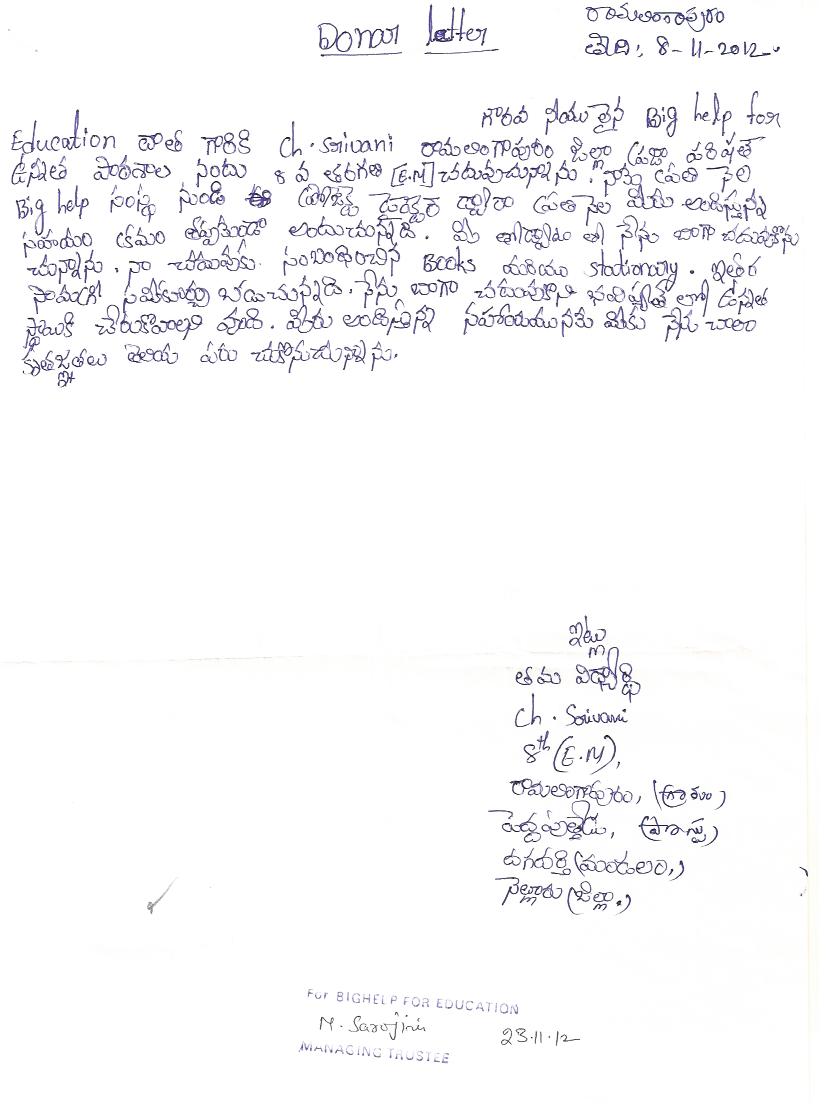 Donar letter
రామలింగాపురం
తేది; 8-11-2012.
గౌరవ నీయులైన Big help for
Education దాత గారికి Ch. Srivani రామలింగాపురం జిల్లా ప్రజా పరిషత్
ఉన్నత పాఠశాల నందు 8 వ తరగతి [E.M] చదువుచున్నాను. నాకు ప్రతి నెల
Big help సంస్థ నుండి ప్రాజెక్ట్ డైరెక్టర్ ద్వారా ప్రతి నెల మీరు అందిస్తున్న
సహాయం క్రమం తప్పకుండా అందుచున్నది. మీ తోడ్పాటు తో నేను బాగా చదువుకొను
చున్నాను. నా చదువుకు సంబంధించిన Books మరియు stationary. ఇతర
సామగ్రి సమకూర్చ బడుచున్నది. నేను బాగా చదువుకొని భవిష్యత్ లో ఉన్నత
స్థాయికి చేరుకోవాలని వుంది. మీరు అందిస్తున్న సహాయమునకు మీకు నేను చాలా
కృతజ్ఞతలు తెలియ పరు చుకొనుచున్నాను.
ఇట్లు
తమ విద్యార్థి
Ch. Srivani
8th (E.M),
రామలింగాపురం, (గ్రామం)
పెద్దపుత్తేడు, (పోస్టు)
దగదర్తి (మండలం,)
నెల్లూరు (జిల్లా.)
For BIGHELP FOR EDUCATION
N. Sarojini
23.11.12
MANAGING TRUSTEE